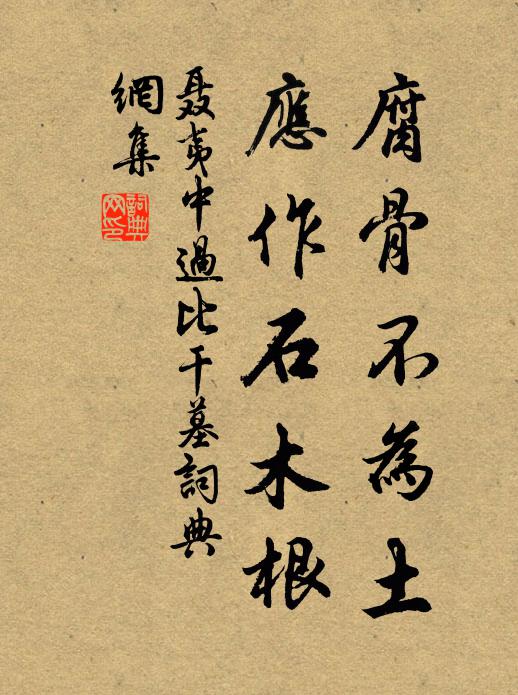 腐骨不為土
應作石木根
聂夷中過比干墓詞典
網集
詞典
网印